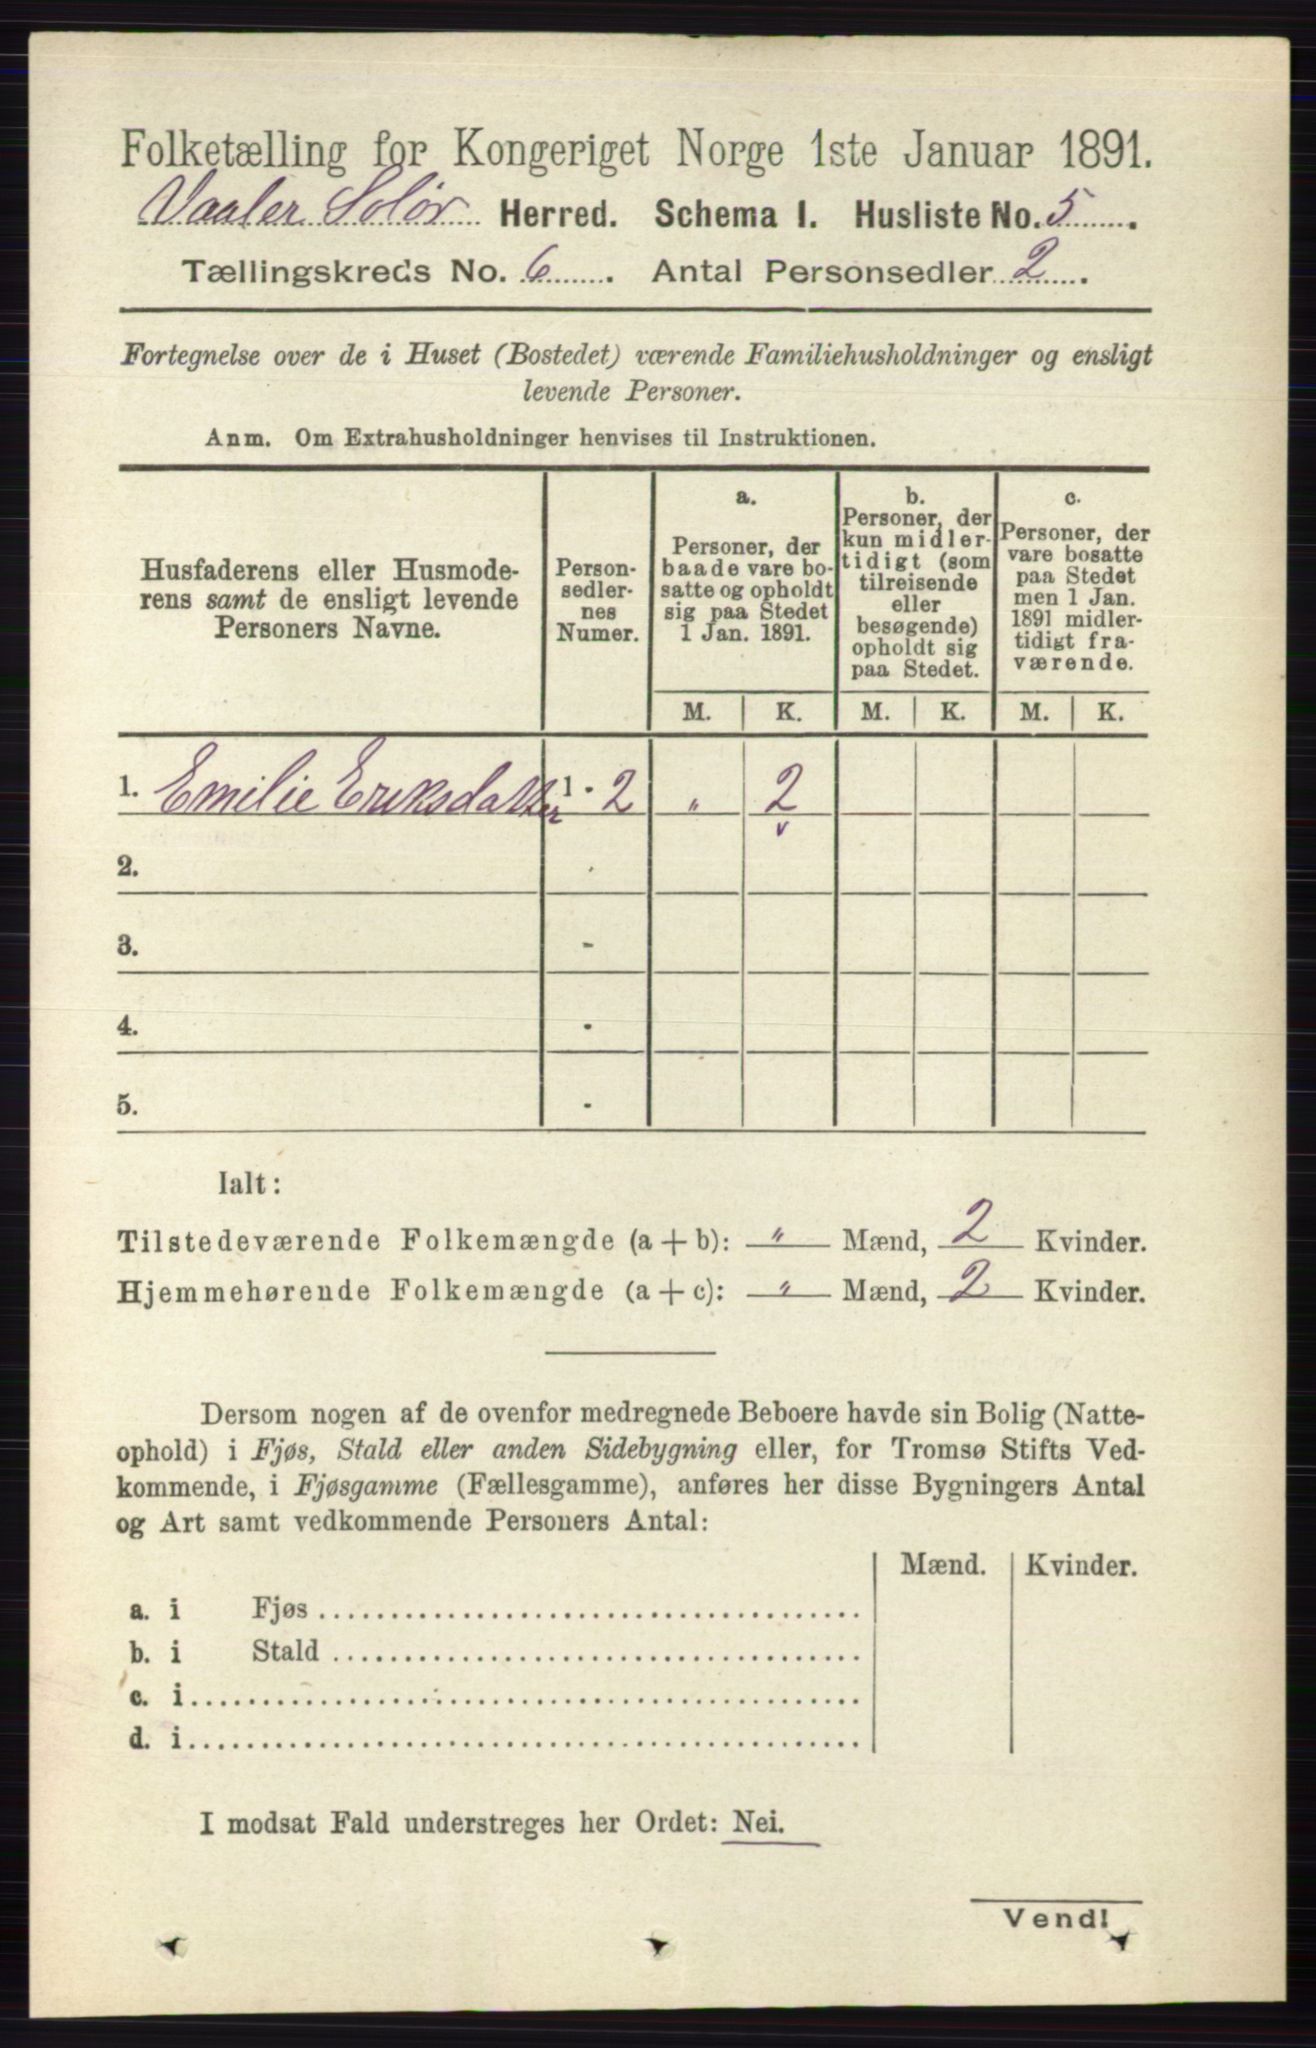 Folketælling for Kongeriget Norge 1ste Januar 1891.
Vaaler Solør Herred. Schema I. Husliste No. 5
Tællingskreds No. 6. Antal Personsedler 2.
Fortegnelse over de i Huset (Bostedet) værende Familiehusholdninger og ensligt
levende Personer.
Anm. Om Extrahusholdninger henvises til Instruktionen.
Husfaderens eller Husmode-
rens samt de ensligt levende
Personers Navne.
Person-
sedler-
nes
Numer.
a.
Personer, der
baade vare bo-
satte og opholdt
sig paa Stedet
1 Jan. 1891.
b.
Personer, der
kun midler-
tidigt (som
tilreisende
eller
besøgende)
opholdt sig
paa Stedet.
c.
Personer, der
vare bosatte
paa Stedet
men 1 Jan.
1891 midler-
tidigt fra-
værende.
M. K. M. K. M. K.
1. Emilie Eriksdatter 1 - 2 " 2
2. -
3. -
4. -
5. -
Ialt:
Tilstedeværende Folkemængde (a + b): " Mænd, 2 Kvinder.
Hjemmehørende Folkemængde (a + c): " Mænd, 2 Kvinder.
Dersom nogen af de ovenfor medregnede Beboere havde sin Bolig (Natte-
ophold) i Fjøs, Stald eller anden Sidebygning eller, for Tromsø Stifts Ved-
kommende, i Fjøsgamme (Fællesgamme), anføres her disse Bygningers Antal
og Art samt vedkommende Personers Antal:
Mænd. Kvinder.
a. i Fjøs
b. i Stald
c. i
d. i
I modsat Fald understreges her Ordet: Nei.
Vend!